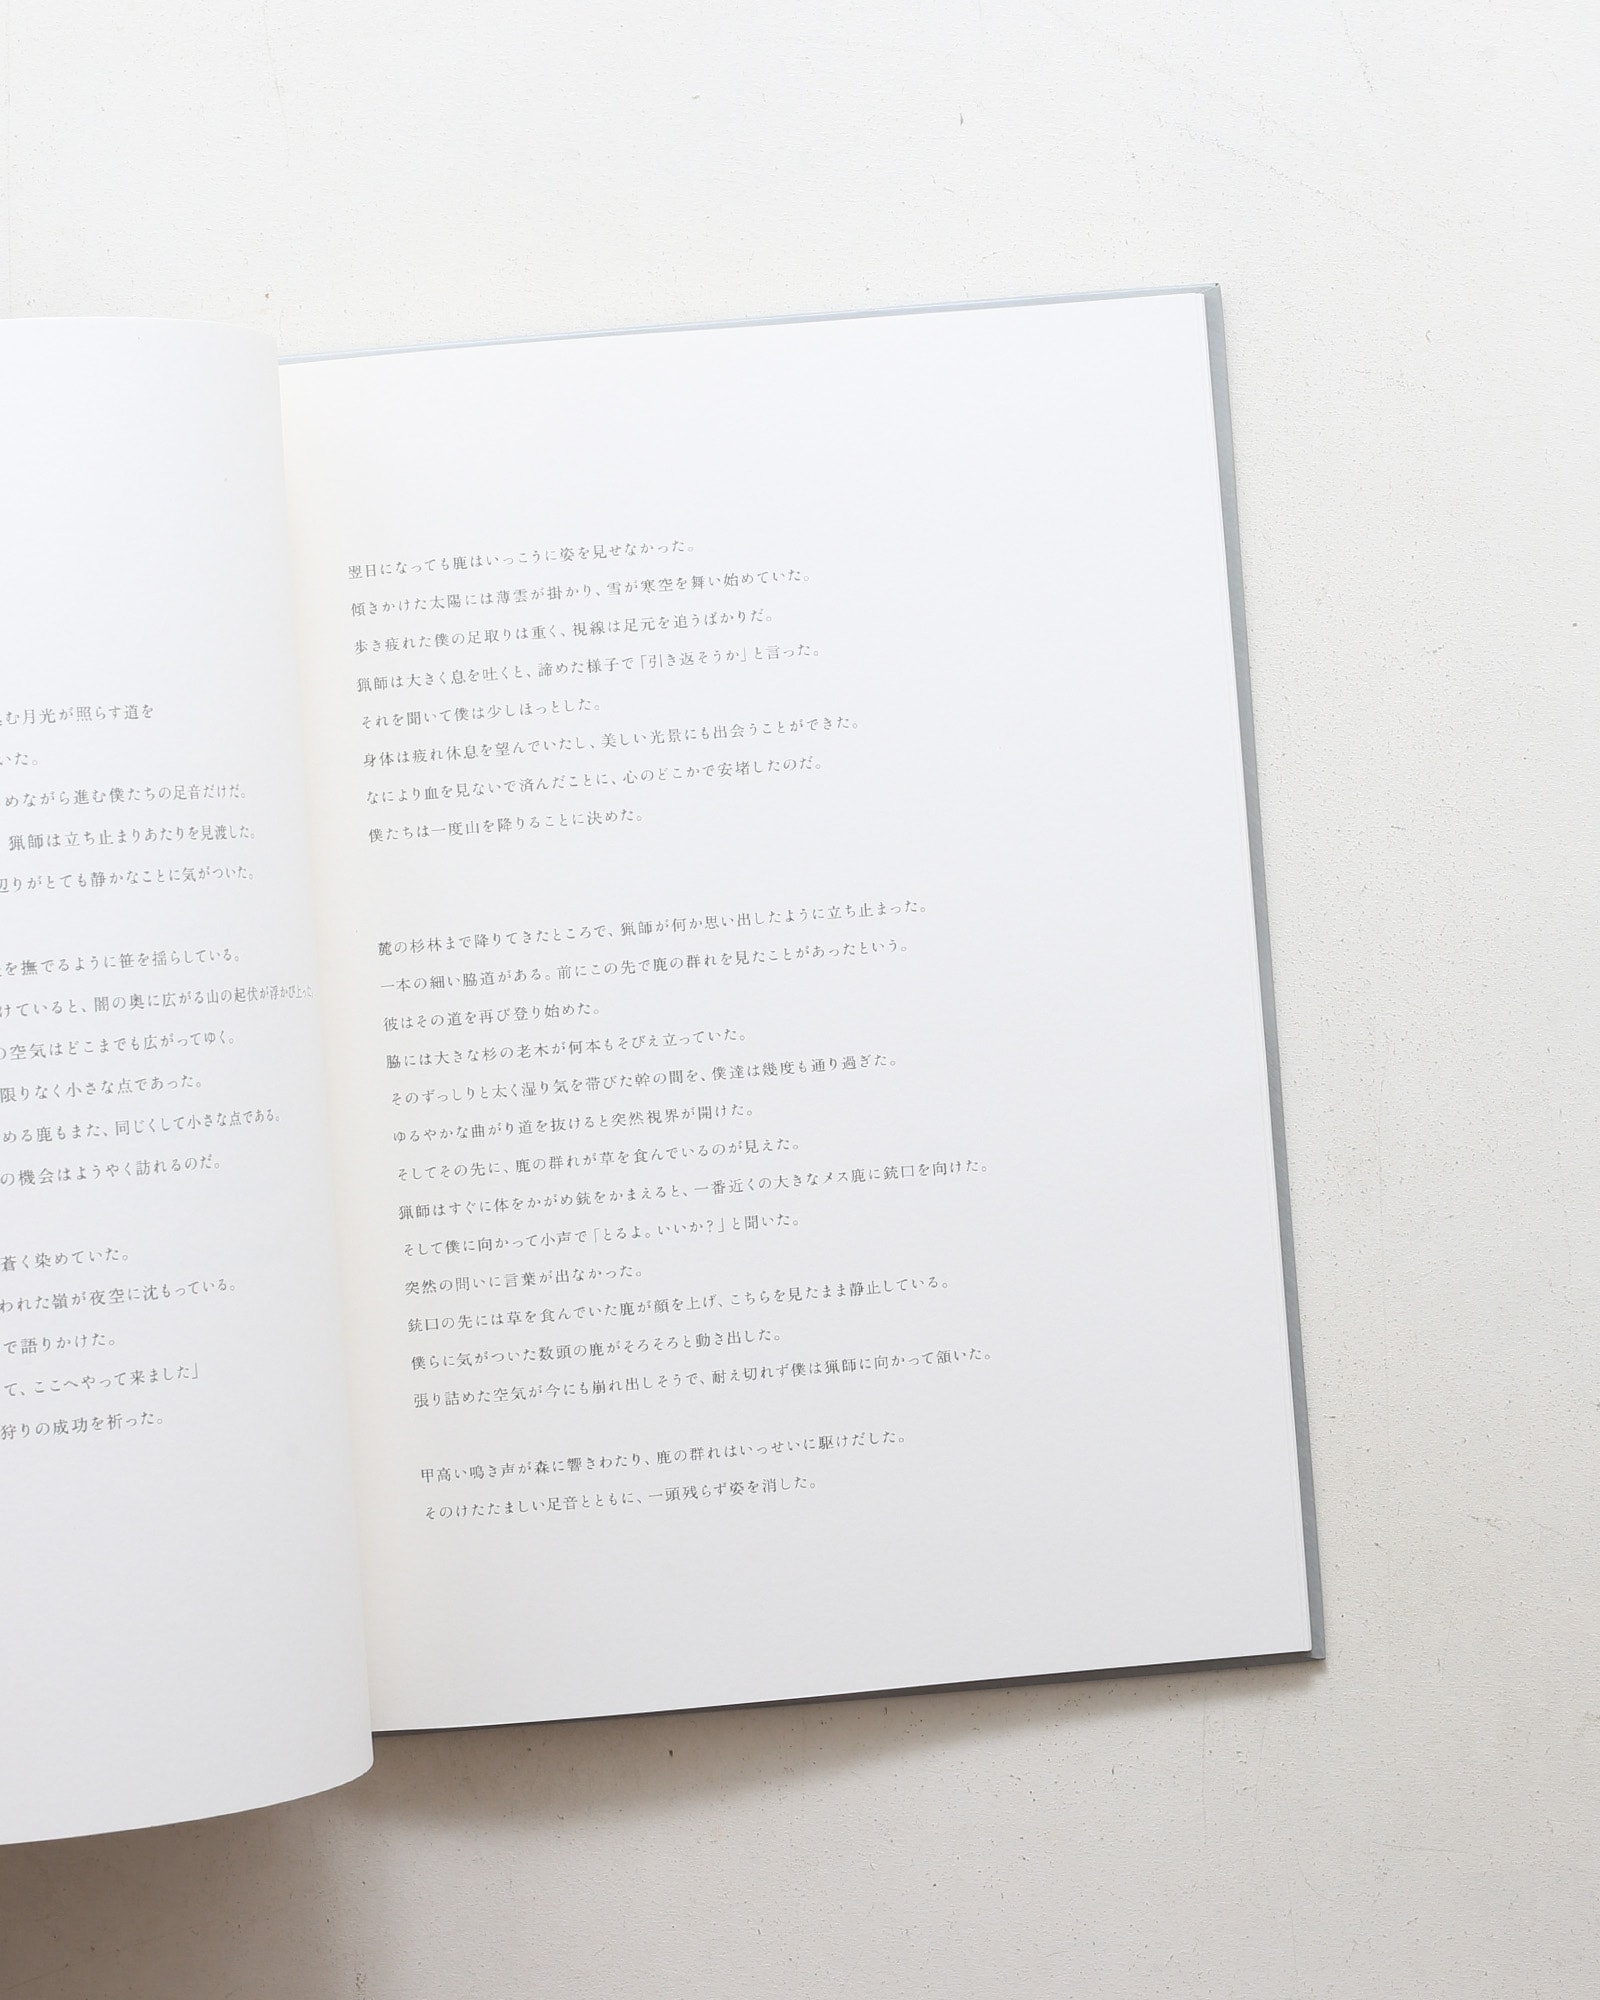 む月光が照らす道を
いた。
めながら進む僕たちの足音だけだ。
猟師は立ち止まりあたりを見渡した。
辺りがとても静かなことに気がついた。
を撫でるように笹を揺らしている。
けていると、闇の奥に広がる山の起伏が浮かび上った。
の空気はどこまでも広がってゆく。
限りなく小さな点であった。
める鹿もまた、同じくして小さな点である。
の機会はようやく訪れるのだ。
蒼く染めていた。
われた嶺が夜空に沈もっている。
で語りかけた。
て、ここへやって来ました」
狩りの成功を祈った。
翌日になっても鹿はいっこうに姿を見せなかった。
傾きかけた太陽には薄雲が掛かり、雪が寒空を舞い始めていた。
歩き疲れた僕の足取りは重く、視線は足元を追うばかりだ。
猟師は大きく息を吐くと、諦めた様子で「引き返そうか」と言った。
それを聞いて僕は少しほっとした。
身体は疲れ休息を望んでいたし、美しい光景にも出会うことができた。
なにより血を見ないで済んだことに、心のどこかで安堵したのだ。
僕たちは一度山を降りることに決めた。
麓の杉林まで降りてきたところで、猟師が何か思い出したように立ち止まった。
一本の細い脇道がある。前にこの先で鹿の群れを見たことがあったという。
彼はその道を再び登り始めた。
脇には大きな杉の老木が何本もそびえ立っていた。
そのずっしりと太く湿り気を帯びた幹の間を、僕達は幾度も通り過ぎた。
ゆるやかな曲がり道を抜けると突然視界が開けた。
そしてその先に、鹿の群れが草を食んでいるのが見えた。
猟師はすぐに体をかがめ銃をかまえると、一番近くの大きなメス鹿に銃口を向けた。
そして僕に向かって小声で「とるよ。いいか？」と聞いた。
突然の問いに言葉が出なかった。
銃口の先には草を食んでいた鹿が顔を上げ、こちらを見たまま静止している。
僕らに気がついた数頭の鹿がそろそろと動き出した。
張り詰めた空気が今にも崩れ出しそうで、耐え切れず僕は猟師に向かって頷いた。
甲高い鳴き声が森に響きわたり、鹿の群れはいっせいに駆けだした。
そのけたたましい足音とともに、一頭残らず姿を消した。